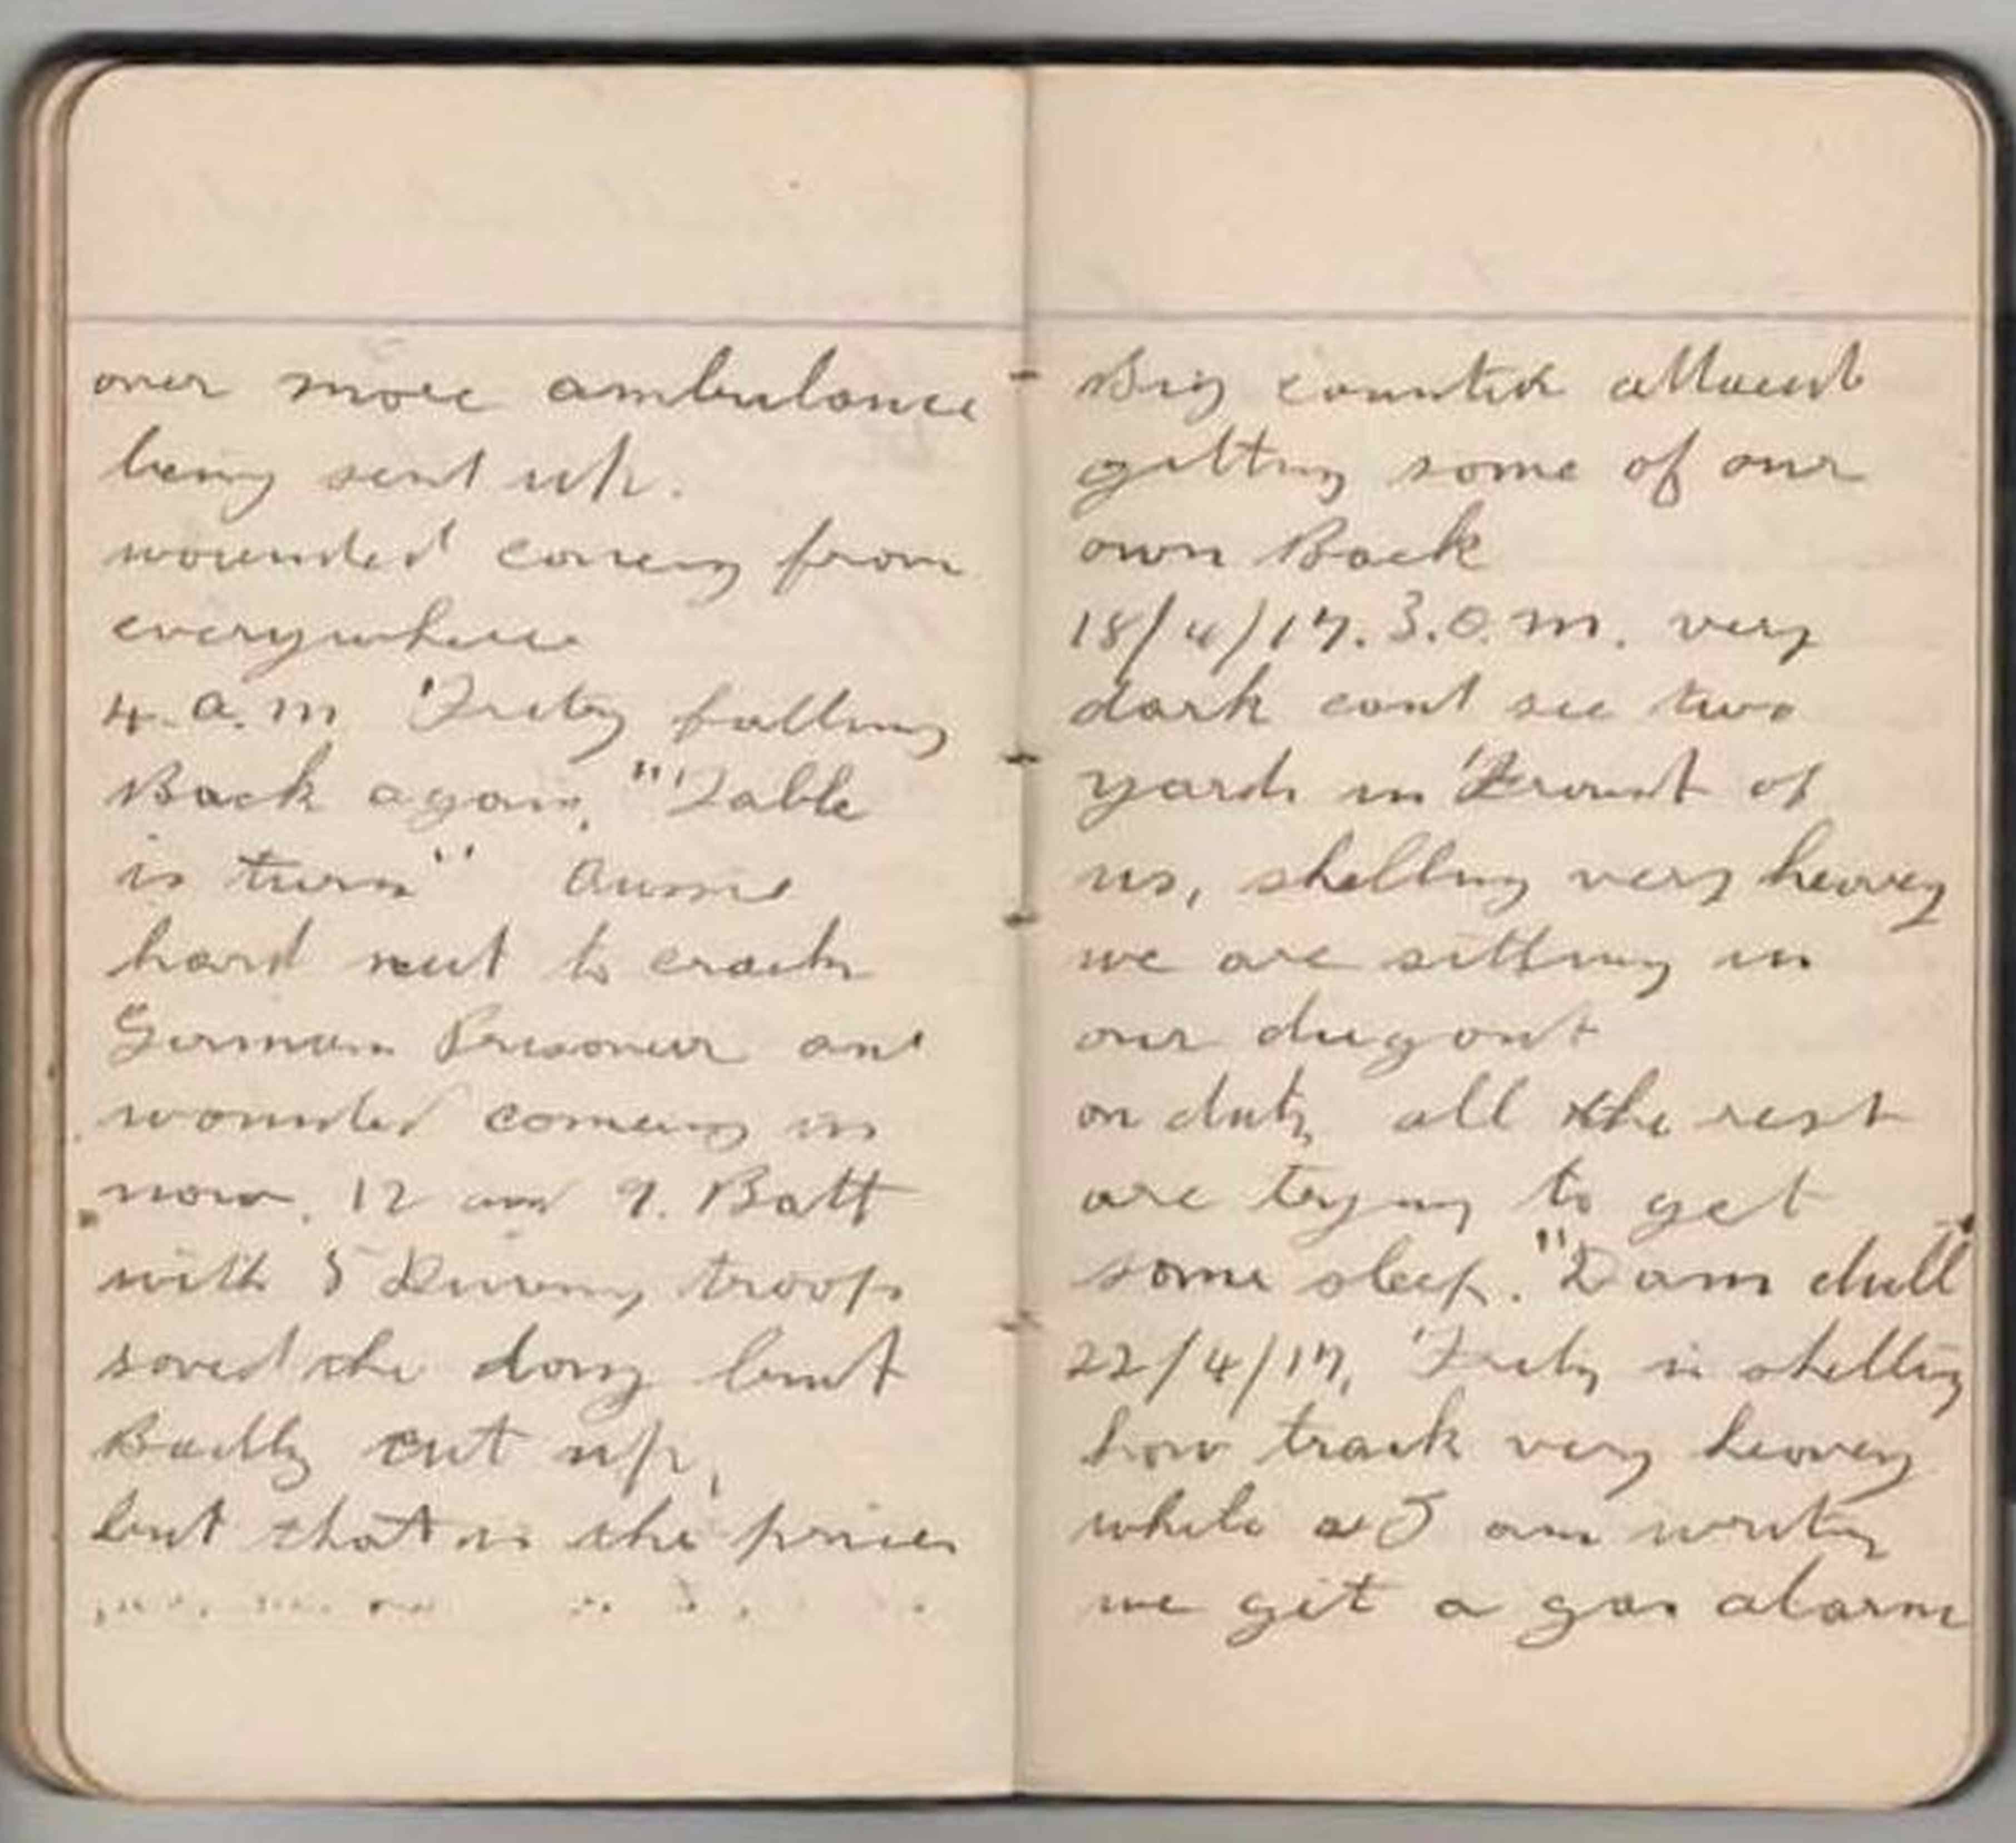 over more ambulance
being sent up.
wounded coming from
everywhere
4. a. m Fritz falling
Back again, "Table
is turn" Aussie
hard nut to crack
German Prisoner and
wounded comeing in
now. 12 and 9. Batt
with 5 Divising troops
saved the day but
Badly cut up,
but that is the prices
Big counter attack
getting some of our
own Back
18/4/17. 3. a. m. very
dark cant see two
yards in Fround of
us, shelling very heavey
we are sitting in
our dugout
on duty all the rest
are trying to get
some sleep. "Dam dull"
22/4/17, Fritz is shelling
how track very heavey
while as I am writing
we get a gas alarm